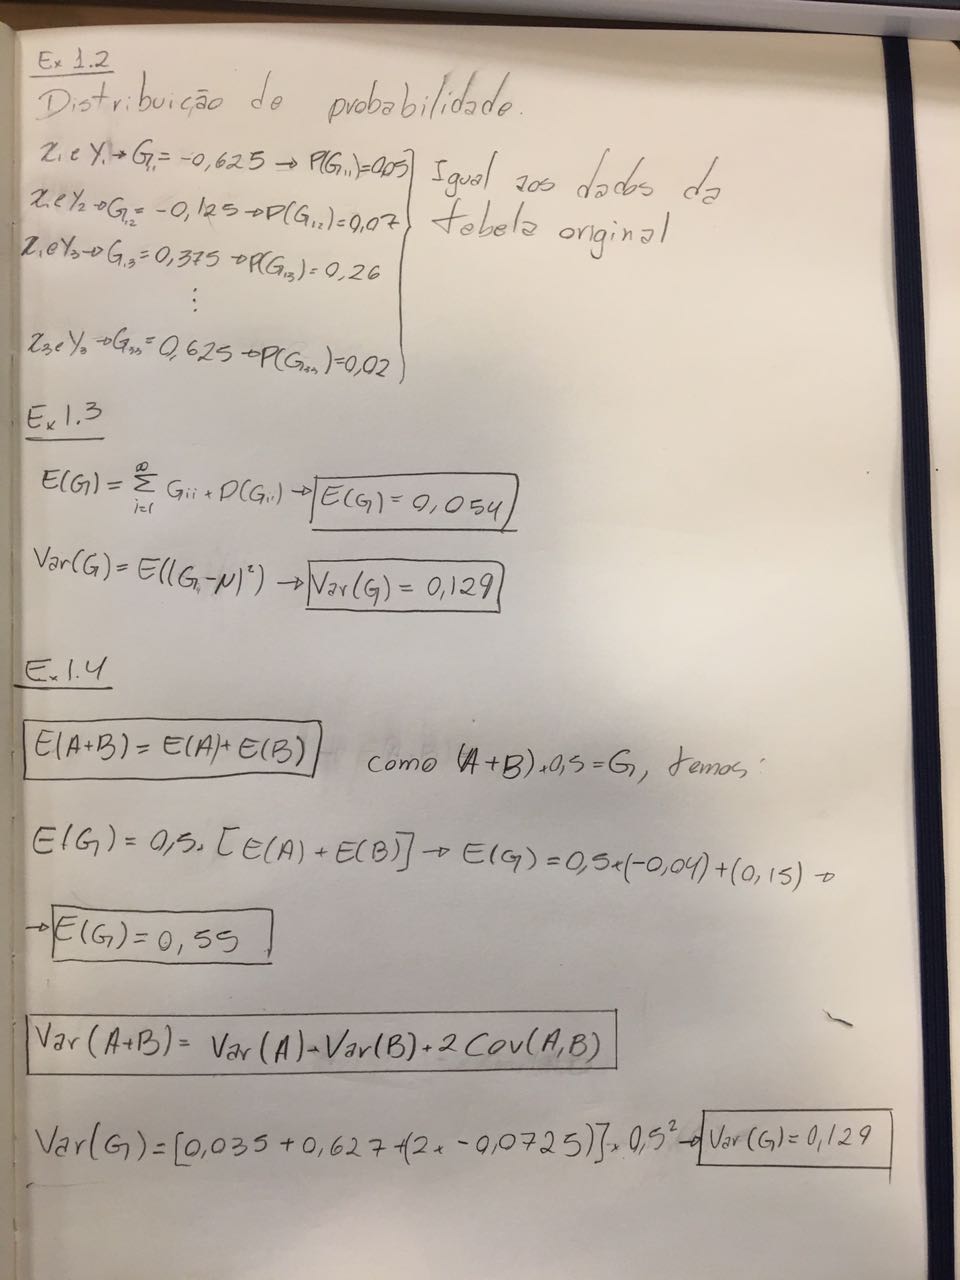 Ex 1.2
Distribuição de probabilidade.
x₁ e Y₁ → G₁₁ = -0,625 → P(G₁₁) = 0,05
x₁ e Y₂ → G₁₂ = -0,125 → P(G₁₂) = 0,07
x₁ e Y₃ → G₁₃ = 0,375 → P(G₁₃) = 0,26
⋮
x₃ e Y₃ → G₃₃ = 0,625 → P(G₃₃) = 0,02
Igual aos dados da
tabela original
Ex 1.3
E(G) = ∞ Σ i=1 Gii * P(Gii) → E(G) = 0,054
Var(G) = E((Gii - μ)²) → Var(G) = 0,129
Ex 1.4
E(A+B) = E(A) + E(B) como (A+B) * 0,5 = G, temos:
E(G) = 0,5 * [E(A) + E(B)] → E(G) = 0,5 * (-0,04) + (0,15) →
→ E(G) = 0,55
Var(A+B) = Var(A) + Var(B) + 2 Cov(A,B)
Var(G) = [0,035 + 0,627 + (2 * -0,0725)] * 0,5² → Var(G) = 0,129